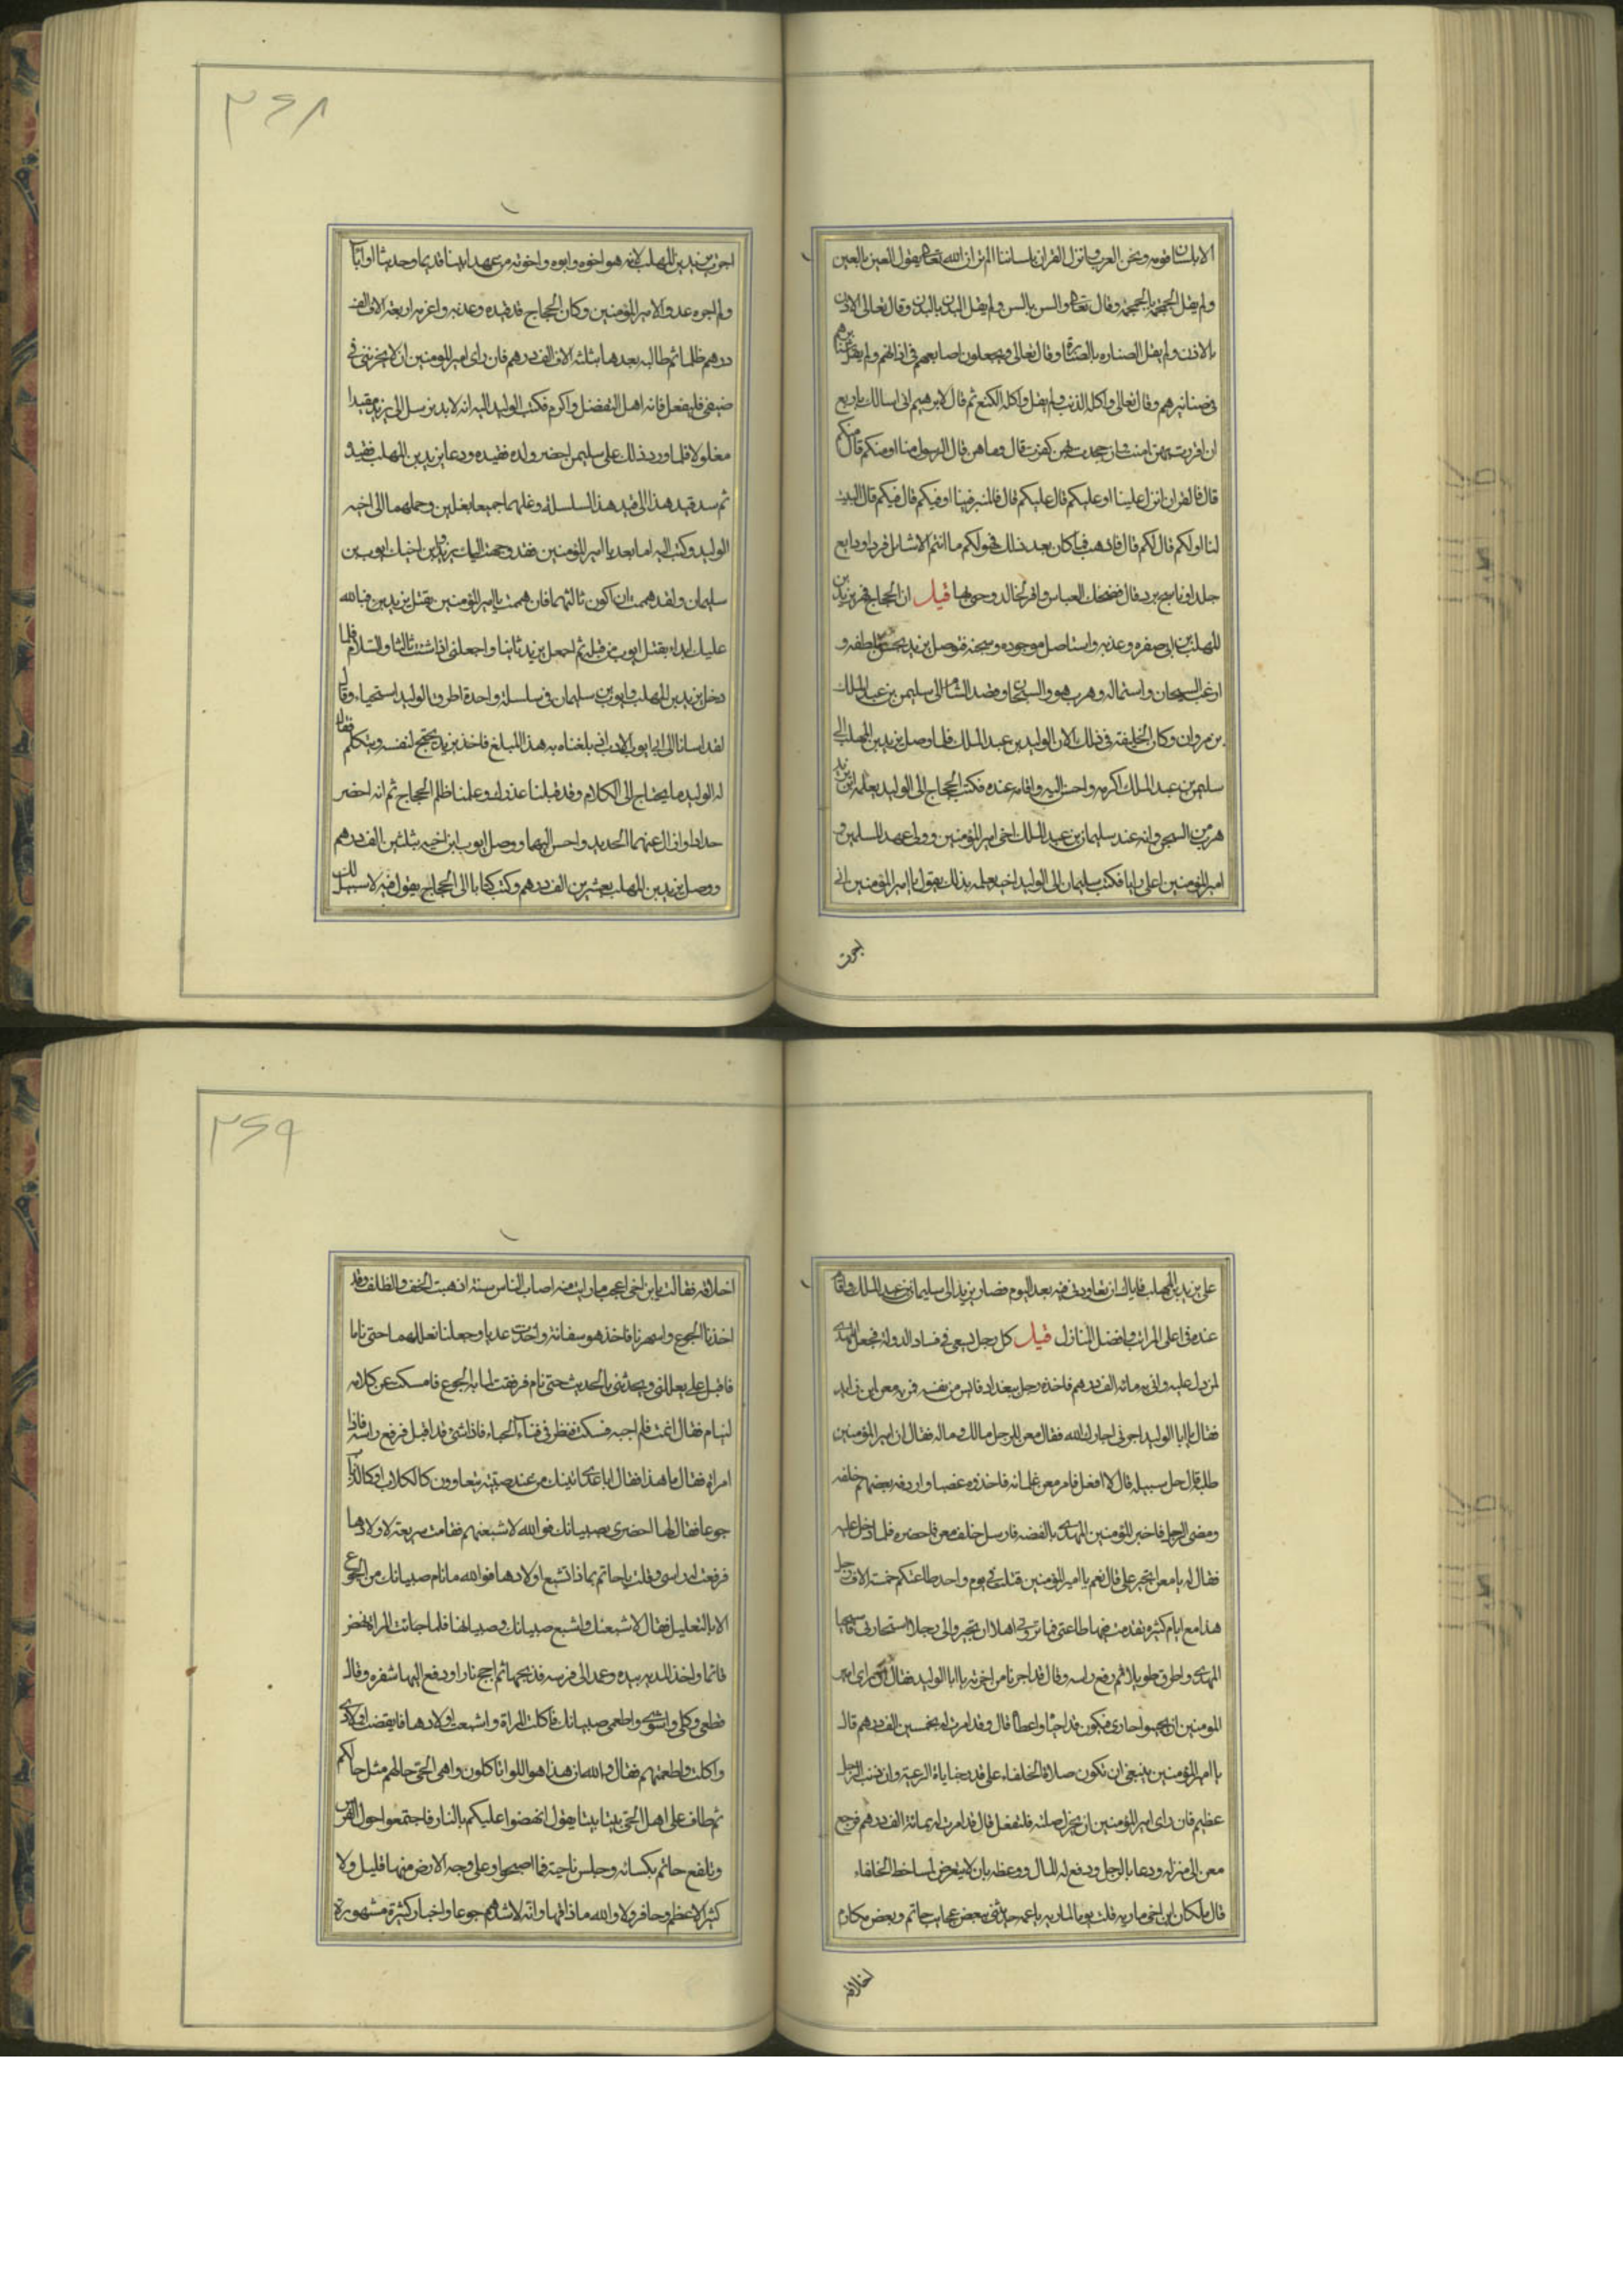 الا بلسان قومه ونحن العرب وانزل القران بلساننا الم تر ان الله تعالى يقول العين بالعين
ولم يقل الجحمة بالجحمة وقال تعالى والسن بالسن ولم يقل البدن بالبدن وقال تعالى الاذن
بالاذن ولم يقل الصنارة بالصنارة وقال تعالى ويجعلون اصابعهم في اذانهم ولم يقل صنانيرهم
في صنانيرهم وقال تعالى واكله الذئب ولم يقل واكله الكتع ثم قال لابرهيم اني اسالك باربع
ان اقررت بهن امنت وان جحدت بهن كفرت قال وما هن قال الرسول منا او منكم قال منكم
قال فالقران انزل علينا او عليكم قال عليكم قال فالمنبر فينا او فيكم قال فيكم قال البيت
لنا او لكم قال لكم قال فاذهب فما كان بعد ذلك فهو لكم ما انتم الا شامل قرد او دابغ
جلد او ناسج برد قال فضحك العباس واقر لخالد وحرجها قيل ان الحجاج قهر يزيد بن
المهلب بن ابي صفره وعذبه واستاصل موجوده وسجنه فتوصل يزيد بحسن تلطفه و
ارغب السجان واستماله وهرب هو والسجان وقصد الشام الى سليمن بن عبد الملك
بن مروان وكان الخليفة في ذلك الان الوليد بن عبد الملك فلما وصل يزيد بن المهلب الى
سليمن بن عبد الملك اكرمه واحسن اليه واقامه عنده فكتب الحجاج الى الوليد يعلمه ان يزيد
هرب من السجن وانه عند سليمان بن عبد الملك اخي امير المؤمنين وولي عهد المسلمين و
امير المؤمنين اعلى رايا فكتب سليمان الى الوليد اخيه يعلمه بذلك يقول يا امير المؤمنين اني
اجرت
اجرت يزيد بن المهلب لانه هو اخوه وابوه واخوته من عهد ابينا قديما وحديثا اوانا
ولم اجر عدوا لامير المؤمنين وكان الحجاج قد قيده وعذبه واغرمه اربعة الاف الف
درهم ظلما ثم طالبه بعدها بثلثة الاف الف درهم فان راى امير المؤمنين ان لا يخزيني في
ضيفي فليفعل فانه اهل التفضل واكرم فكتب الوليد اليه انه لابد ترسل الى يزيد مقيدا
مغلولا فلما ورد ذلك على سليمن احضر ولده فقيده ودعا يزيد بن المهلب فقيده
ثم سد قيد هذا الى قيد هذا السلسلة وغلهما جميعا بغلين وحملهما الى اخيه
الوليد وكتب اليه اما بعد يا امير المؤمنين فقد وجهت اليك يزيد وابن اخيك ايوب بن
سليمان ولقد هممت ان اكون ثالثهما فان هممت يا امير المؤمنين بقتل يزيد بن فبالله
عليك ابداء بقتل ايوب من قبله ثم اجعل يزيد ثانيا واجعلني اذا شئت ثالثا والسلام فلما
دخل يزيد بن المهلب وايوب بن سليمان في سلسلة واحدة اطرق الوليد استحياء وقال
لقد اسانا الى ابي ايوب اذ بلغنا به هذا المبلغ فاخذ يزيد يحتج لنفسه ويتكلم فقال
له الوليد ما يحتاج الى الكلام وقد قبلنا عذرك وعلمنا ظلم الحجاج ثم انه احضر
حدادا وازال عنهما الحديد واحسن اليهما ووصل ايوب ابن اخيه بثلثين الف درهم
ووصل يزيد بن المهلب بعشرين الف درهم وكتب كتابا الى الحجاج يقول فيه لا سبيل لك
۲۶۸
على يزيد بن المهلب فاياك ان تعاودني فيه بعد اليوم فصار يزيد الى سليمان بن عبد الملك واقام
عنده في اعلى المراتب وافضل المنازل قيل كل رجل يسعى في فساد الدولة فجعل المهدي
لمن دل عليه واتى به مائة الف درهم فاخذه رجل ببغداد فايس من نفسه فمر به معن ابن زايد
فقال يا ابا الوليد اجرني اجارك الله فقال معن للرجل مالك وماله فقال ان امير المؤمنين
طلبه قال خل سبيله قال لا افعل فامر معن غلمانه فاخذوه غصبا واردفه بعضهم خلفه
ومضى الرجل فاخبر المؤمنين المهدي بالقصة فارسل خلف معن فاحضره فلما دخل عليه
فقال له يا معن اتجير علي قال نعم يا امير المؤمنين قتلت في يوم واحد طاعتكم خمسة الاف رجل
هذا مع ايام كثيرة تقدمت فيها طاعتي فما تروني اهلا ان تجيروا لي رجلا استجار بي فاستحيا
المهدي واطرق طويلا ثم رفع راسه وقال قد اجرنا من اجرت يا ابا الوليد فقال ان راى امير
المومنين ان يحبوا جاري فيكون قد احياه واعطاه قال وقد امرت له بخمسين الف درهم قال
يا امير المؤمنين ينبغي ان تكون صلاة الخلفاء على قدر جنايات الرعية وان ذنب الرجل
عظيم فان راى امير المؤمنين ان يجزل صلته فليفعل قال قد امرت له بمائة الف درهم فرجع
معن الى منزله ودعا بالرجل ودفع له المال ووعظه بان لا يتعرض لمساخط الخلفاء
قال ملكان ابن اخي ماريه قلت يوما لماريه يا عمه حدثني ببعض عجايب حاتم وبعض مكارم
اخلاقه
اخلاقه فقالت يا ابن اخي اعجب ما رايت منه اصاب الناس سنة اذهبت الخف والظلف وقد
اخذنا الجوع واسهرنا فاخذ هو سفانة واخذت عديا وجعلنا نعللهما حتى ناما
فاقبل علي يعللني ويحدثني بالحديث حتى نام فرفقت لما به الجوع فامسكت عن كلامه
لينام فقال انمت فلم اجبه فسكت فنظر في فناء الخباء فاذا شئ قد اقبل فرفع راسه فاذا
امراة فقال ما هذا فقال ابا عدي اتيتك من عند صبية يتعاوون كالكلاب او كالذئاب
جوعا فقال لها احضري صبيانك فوالله لاشبعنهم فقامت سريعة لاولادها
فرفعت راسي وقلت يا حاتم بماذا تشبع اولادها فوالله ما نام صبيانك من الجوع
الا بالتعليل فقال لاشبعنك واشبع صبيانك وصبيانها فلما جائت المراة نهض
قائما واخذ المدية بيده وعمد الى فرسه فذبحها ثم اجج نارا ودفع اليها شفره وقال
قطعي وكلي واشوي واطعمي صبيانك فاكلت المراة واشبعت اولادها فايقضت اولادي
واكلت واطعمتهم فقال والله ان هذا هو اللوم اتاكلون واهل الحي حالهم مثل حالكم
ثم طاف على اهل الحي بيتا بيتا يقول انهضوا عليكم بالنار فاجتمعوا حول الفرس
وتلفع حاتم بكسائه وجلس ناحية فما اصبحوا وعلى وجه الارض منها قليل ولا
كثير الا عظم وحافر ولا والله ما ذاقها وانه لاشدهم جوعا واخباره كثيرة مشهورة
۲۶۹